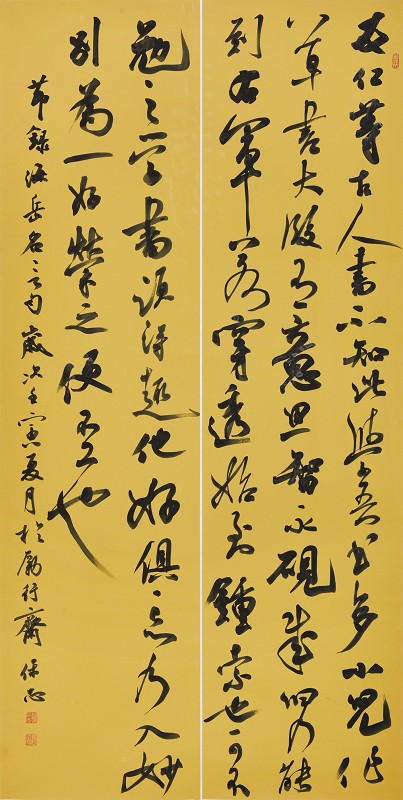 友仁等古人書不知此學吾書多小兒作
草書大段有意思智永硯成臼乃能
到右軍若穿透始到鍾索也可
勉之學書須得趣他好俱忘乃入妙
別為一好縈之便不工也
節錄海岳名言句歲次壬寅夏月於勵行齋保